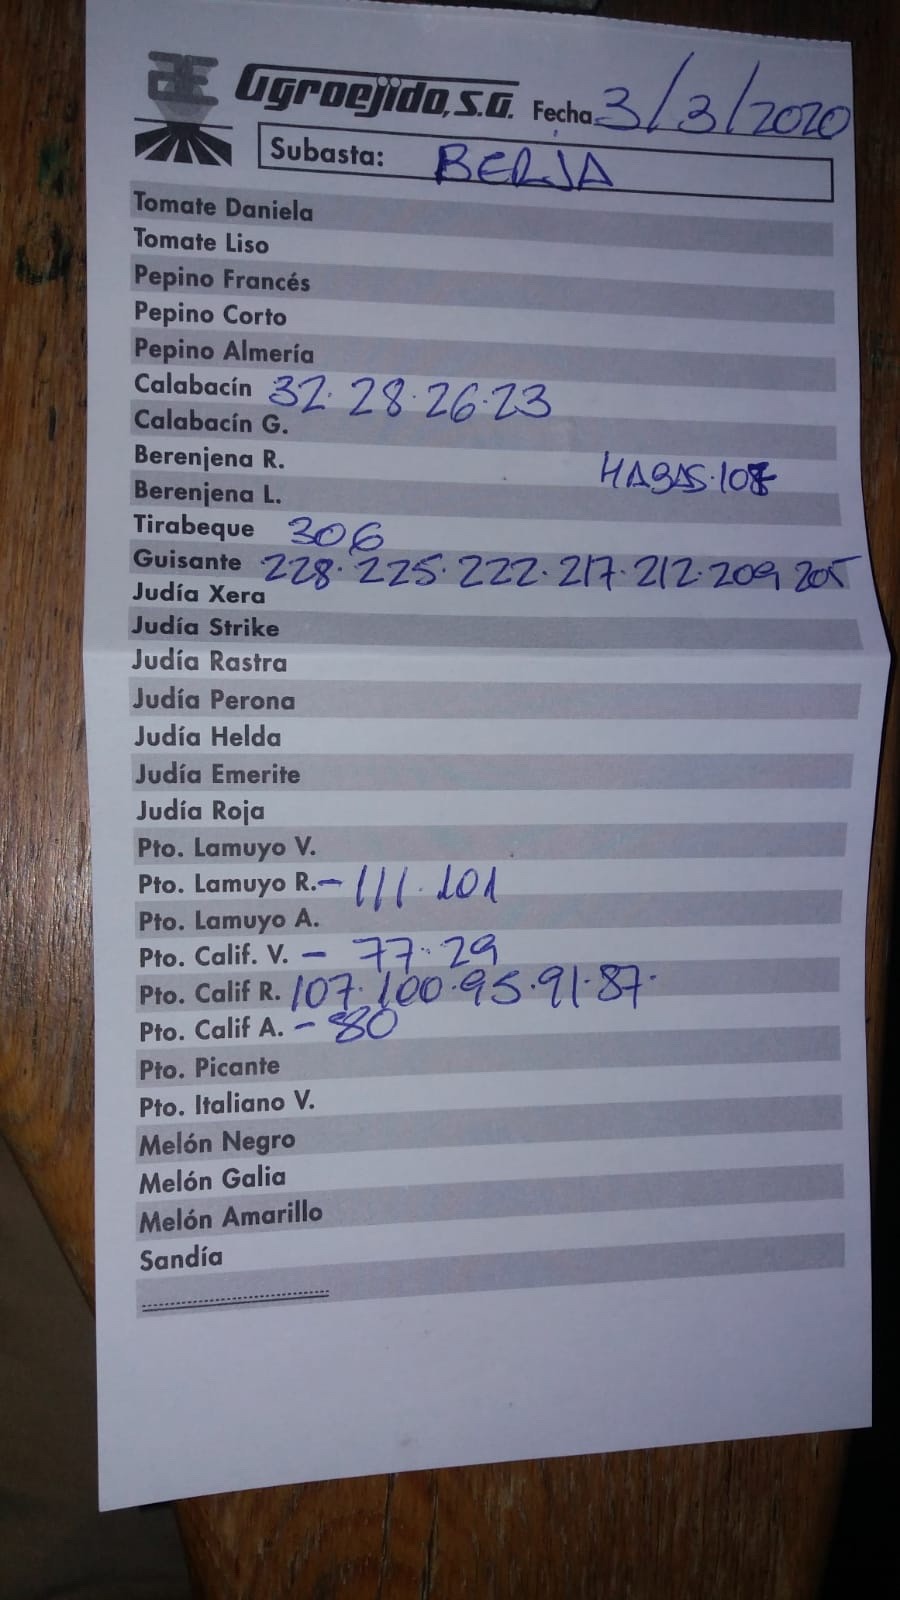 Agroejido, S.A. Fecha 3/3/2020
Subasta: BERJA
Tomate Daniela
Tomate Liso
Pepino Francés
Pepino Corto
Pepino Almería
Calabacín 32. 28. 26. 23
Calabacín G.
Berenjena R.
HABAS.
Berenjena L.
Tirabeque 306
Guisante 228. 225. 222. 217. 212. 209 205
Judía Xera
Judía Strike
Judía Rastra
Judía Perona
Judía Helda
Judía Emerite
Judía Roja
Pto. Lamuyo V.
Pto. Lamuyo R. - 111. 101
Pto. Lamuyo A.
Pto. Calif. V. - 77. 29
Pto. Calif R. 107. 100. 95. 91. 87.
Pto. Calif A. - 80
Pto. Picante
Pto. Italiano V.
Melón Negro
Melón Galia
Melón Amarillo
Sandía